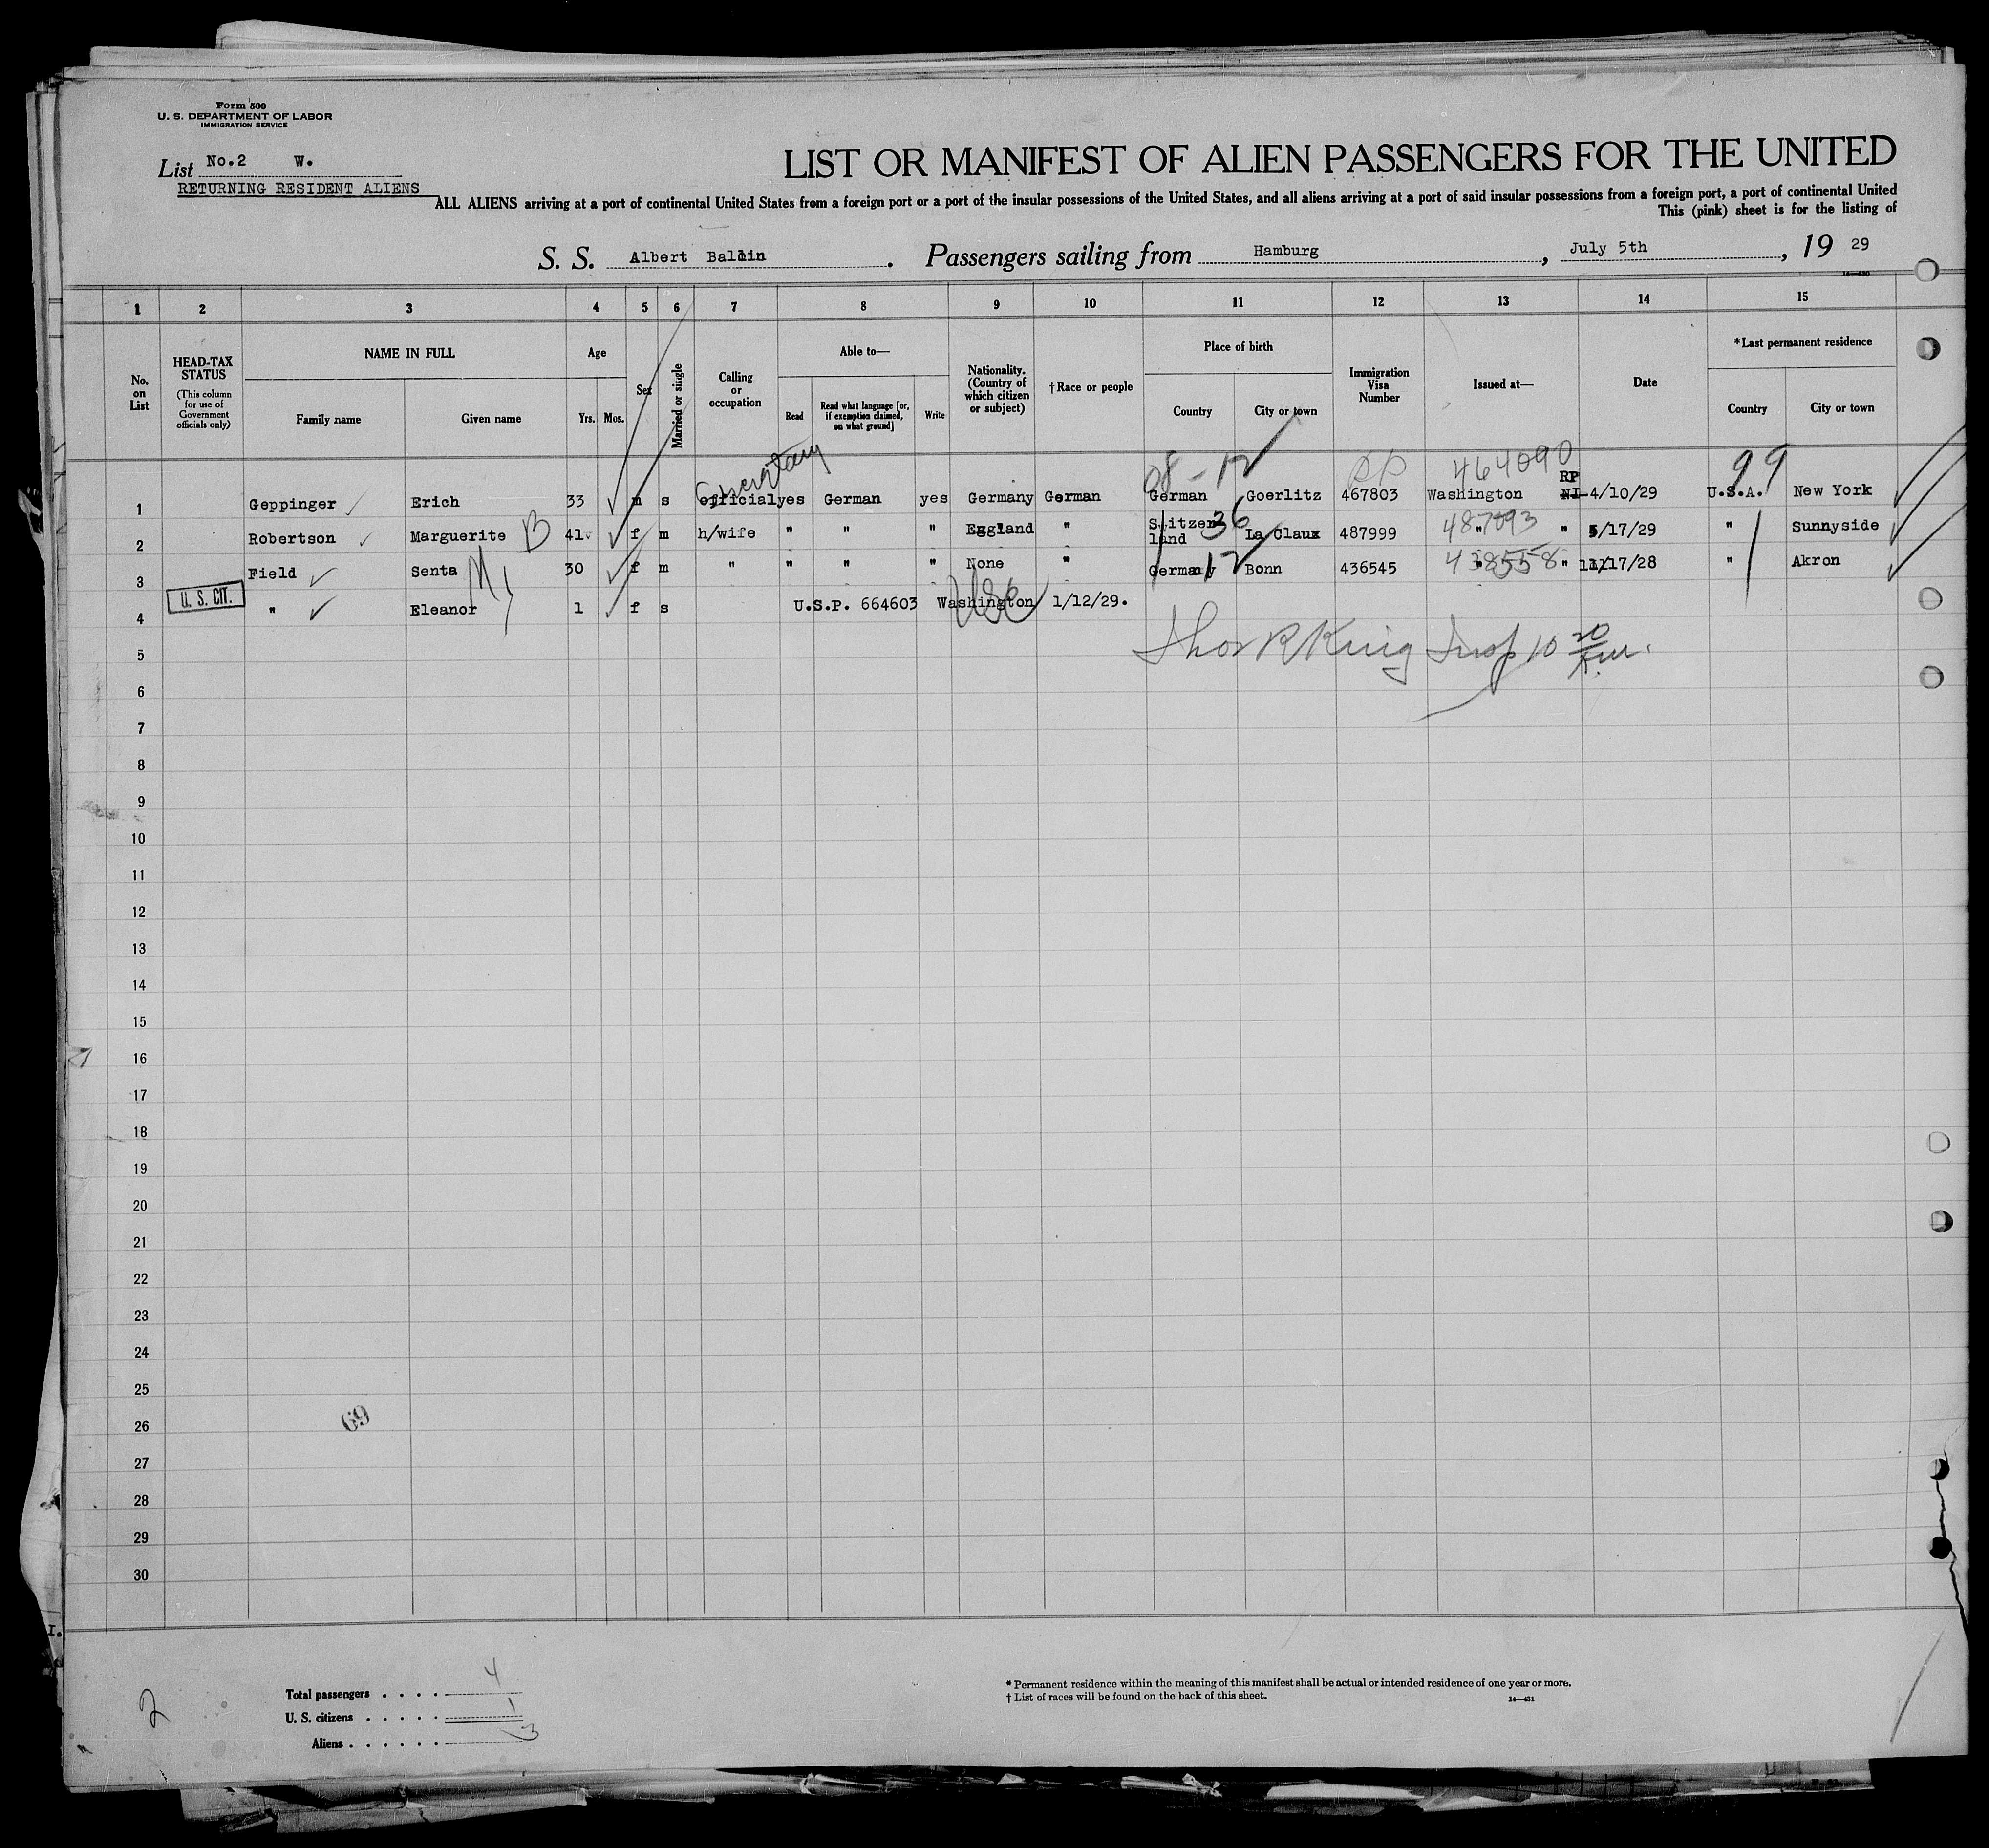 Form 500
U. S. DEPARTMENT OF LABOR
IMMIGRATION SERVICE
List No.2 W.
RETURNING RESIDENT ALIENS
LIST OR MANIFEST OF ALIEN PASSENGERS FOR THE UNITED
ALL ALIENS arriving at a port of continental United States from a foreign port or a port of the insular possessions of the United States, and all aliens arriving at a port of said insular possessions from a foreign port, a port of continental United
This (pink) sheet is for the listing of
S. S. Albert Ballin. Passengers sailing from Hamburg, July 5th, 19 29
14—430
1 2 3 4 5 6 7 8 9 10 11 12 13 14 15
No. on List
HEAD-TAX STATUS (This column for use of Government officials only)
NAME IN FULL
Family name Given name
Age
Yrs. Mos.
Sex
Married or single
Calling or occupation
Able to—
Read Read what language [or, if exemption claimed, on what ground] Write
Nationality. (Country of which citizen or subject)
†Race or people
Place of birth
Country City or town
Immigration Visa Number
Issued at—
Date
*Last permanent residence
Country City or town
Secretary 08 - 12 RP 464090 RP 99
1 Geppinger Erich 33 m s official yes German yes Germany German German Goerlitz 467803 Washington NI 4/10/29 U.S.A. New York
2 Robertson Marguerite B 41 f m h/wife " " " England " Switzer land 36 La Claux 487999 " 487093 " 5/17/29 " Sunnyside
3 Field Senta M 30 f m " " " " None " Germany 12 Bonn 436545 " 438558 " 11/17/28 " Akron
4 U. S. CIT. " Eleanor 1 f s U.S.P. 664603 Washington 1/12/29. USC
Thos R King Insp 10 20 Am.
5
6
7
8
9
10
11
12
13
14
15
16
17
18
19
20
21
22
23
24
25
26
69
27
28
29
30
2
Total passengers . . . . 4
U. S. citizens . . . . . 1
Aliens . . . . . . 3
* Permanent residence within the meaning of this manifest shall be actual or intended residence of one year or more.
† List of races will be found on the back of this sheet.
14—431